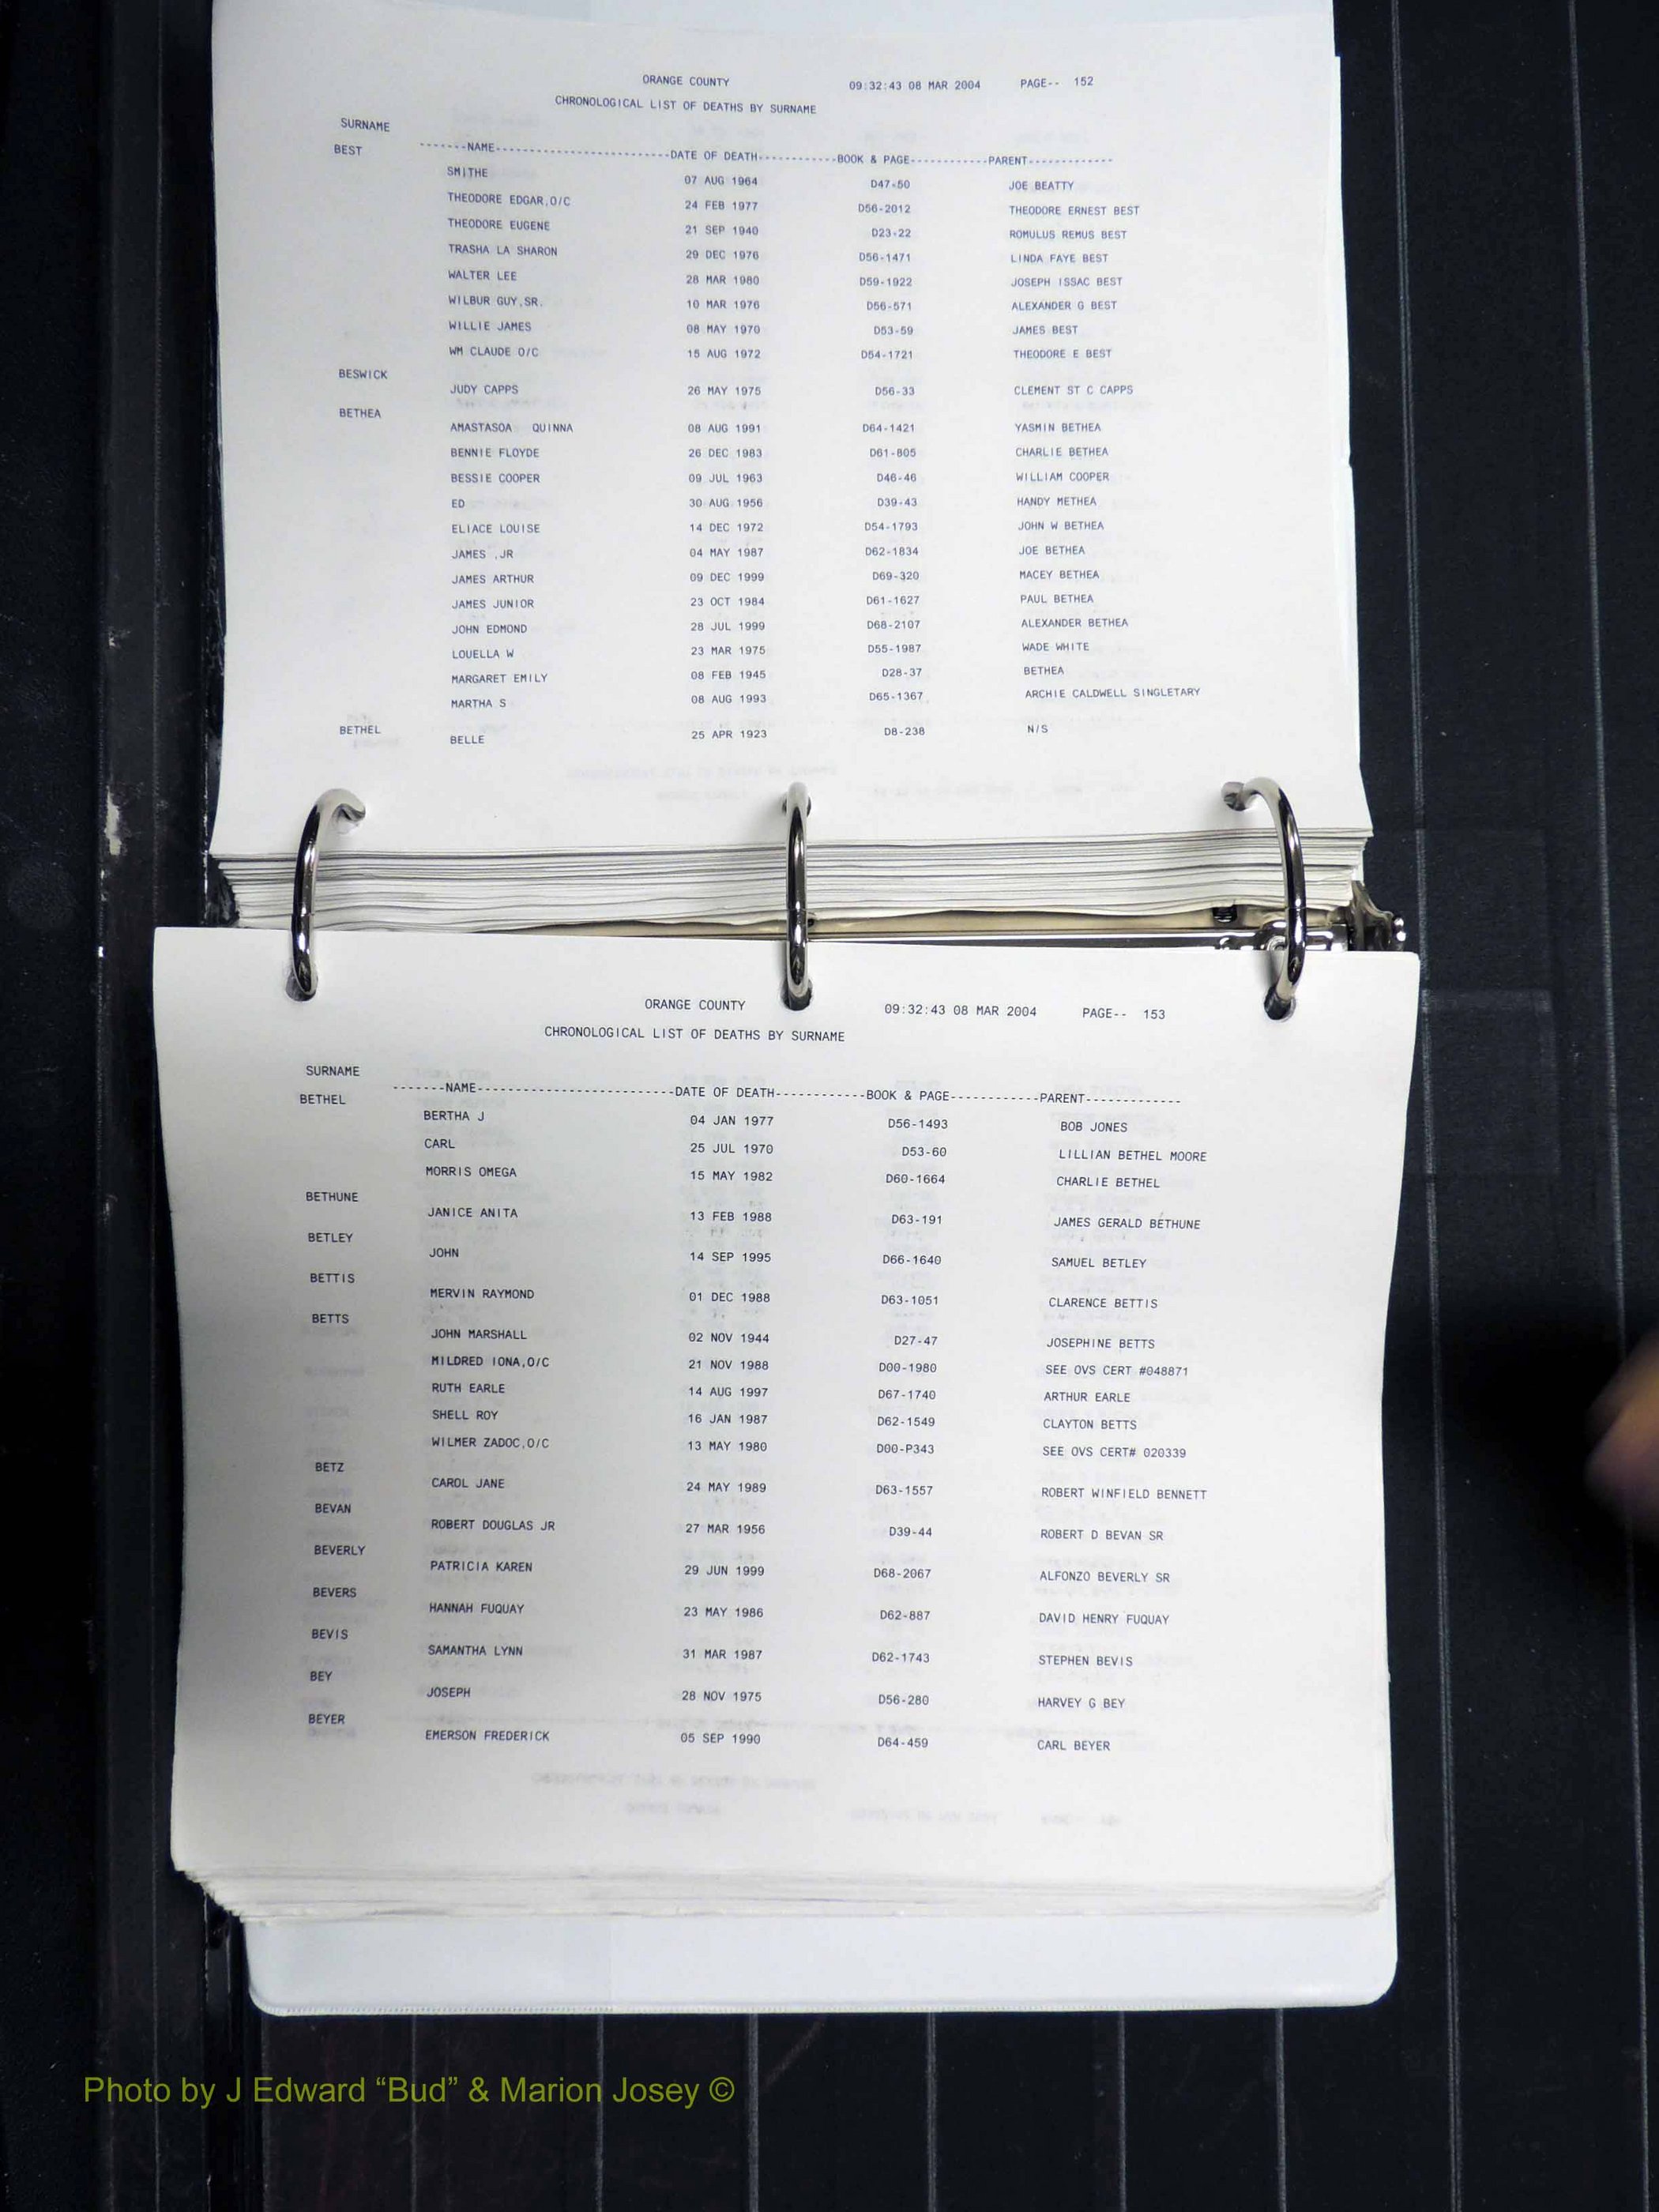 ORANGE COUNTY 09:32:43 08 MAR 2004 PAGE-- 152
CHRONOLOGICAL LIST OF DEATHS BY SURNAME
SURNAME
-------NAME-------------------------DATE OF DEATH-----------BOOK & PAGE-----------PARENT-------------
BEST
SMITHE 07 AUG 1964 D47-50 JOE BEATTY
THEODORE EDGAR,O/C 24 FEB 1977 D56-2012 THEODORE ERNEST BEST
THEODORE EUGENE 21 SEP 1940 D23-22 ROMULUS REMUS BEST
TRASHA LA SHARON 29 DEC 1976 D56-1471 LINDA FAYE BEST
WALTER LEE 28 MAR 1980 D59-1922 JOSEPH ISSAC BEST
WILBUR GUY,SR. 10 MAR 1976 D56-571 ALEXANDER G BEST
WILLIE JAMES 08 MAY 1970 D53-59 JAMES BEST
WM CLAUDE O/C 15 AUG 1972 D54-1721 THEODORE E BEST
BESWICK
JUDY CAPPS 26 MAY 1975 D56-33 CLEMENT ST C CAPPS
BETHEA
AMASTASOA QUINNA 08 AUG 1991 D64-1421 YASMIN BETHEA
BENNIE FLOYDE 26 DEC 1983 D61-805 CHARLIE BETHEA
BESSIE COOPER 09 JUL 1963 D46-46 WILLIAM COOPER
ED 30 AUG 1956 D39-43 HANDY METHEA
ELIACE LOUISE 14 DEC 1972 D54-1793 JOHN W BETHEA
JAMES ,JR 04 MAY 1987 D62-1834 JOE BETHEA
JAMES ARTHUR 09 DEC 1999 D69-320 MACEY BETHEA
JAMES JUNIOR 23 OCT 1984 D61-1627 PAUL BETHEA
JOHN EDMOND 28 JUL 1999 D68-2107 ALEXANDER BETHEA
LOUELLA W 23 MAR 1975 D55-1987 WADE WHITE
MARGARET EMILY 08 FEB 1945 D28-37 BETHEA
MARTHA S 08 AUG 1993 D65-1367 ARCHIE CALDWELL SINGLETARY
BETHEL
BELLE 25 APR 1923 D8-238 N/S
ORANGE COUNTY 09:32:43 08 MAR 2004 PAGE-- 153
CHRONOLOGICAL LIST OF DEATHS BY SURNAME
SURNAME
-------NAME-------------------------DATE OF DEATH------------BOOK & PAGE-----------PARENT-------------
BETHEL
BERTHA J 04 JAN 1977 D56-1493 BOB JONES
CARL 25 JUL 1970 D53-60 LILLIAN BETHEL MOORE
MORRIS OMEGA 15 MAY 1982 D60-1664 CHARLIE BETHEL
BETHUNE
JANICE ANITA 13 FEB 1988 D63-191 JAMES GERALD BETHUNE
BETLEY
JOHN 14 SEP 1995 D66-1640 SAMUEL BETLEY
BETTIS
MERVIN RAYMOND 01 DEC 1988 D63-1051 CLARENCE BETTIS
BETTS
JOHN MARSHALL 02 NOV 1944 D27-47 JOSEPHINE BETTS
MILDRED IONA,O/C 21 NOV 1988 D00-1980 SEE OVS CERT #048871
RUTH EARLE 14 AUG 1997 D67-1740 ARTHUR EARLE
SHELL ROY 16 JAN 1987 D62-1549 CLAYTON BETTS
WILMER ZADOC,O/C 13 MAY 1980 D00-P343 SEE OVS CERT# 020339
BETZ
CAROL JANE 24 MAY 1989 D63-1557 ROBERT WINFIELD BENNETT
BEVAN
ROBERT DOUGLAS JR 27 MAR 1956 D39-44 ROBERT D BEVAN SR
BEVERLY
PATRICIA KAREN 29 JUN 1999 D68-2067 ALFONZO BEVERLY SR
BEVERS
HANNAH FUQUAY 23 MAY 1986 D62-887 DAVID HENRY FUQUAY
BEVIS
SAMANTHA LYNN 31 MAR 1987 D62-1743 STEPHEN BEVIS
BEY
JOSEPH 28 NOV 1975 D56-280 HARVEY G BEY
BEYER
EMERSON FREDERICK 05 SEP 1990 D64-459 CARL BEYER
Photo by J Edward “Bud” & Marion Josey ©